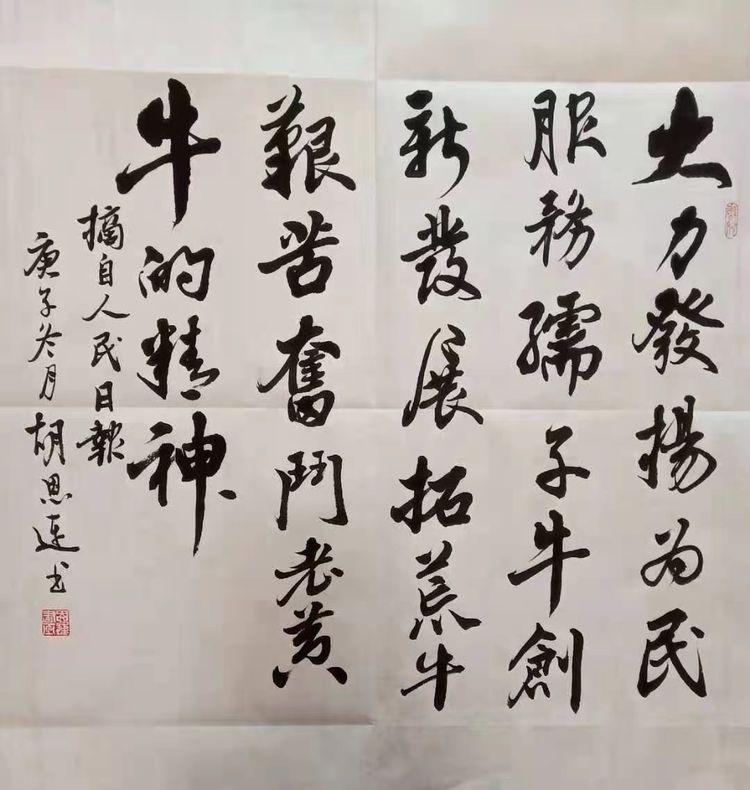 大力發揚为民
服務孺子牛創
新發展拓荒牛
艱苦奮鬥老黄
牛的精神
摘自人民日報
庚子冬月胡思連书